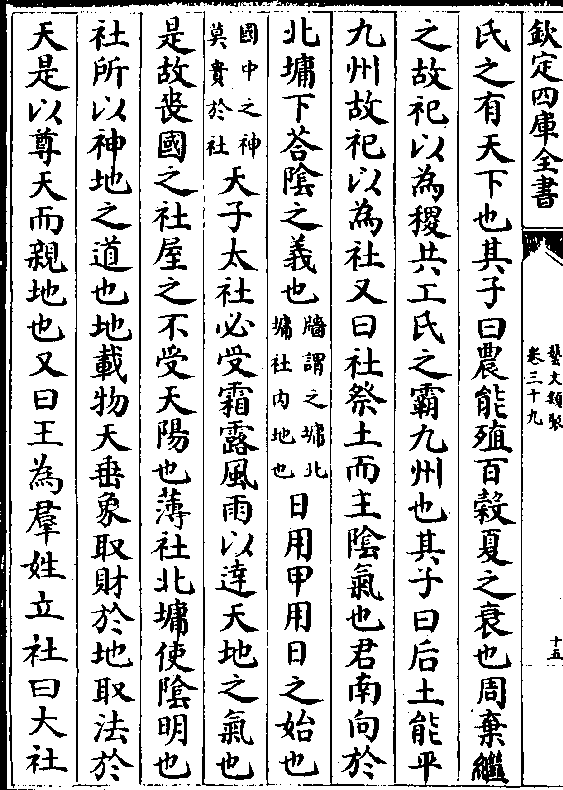 欽定四庫全書
藝文類聚
卷三十九
十五
氏之有天下也其子曰農能殖百榖夏之衰也周棄繼
之故祀以為稷共工氏之霸九州也其子曰后土能平
九州故祀以為社又曰社祭土而主隂氣也君南向於
北墉下荅隂之義也牆謂之墉北墉社内地也日用甲用日之始也
國中之神莫貴於社天子太社必受霜露風雨以達天地之氣也
是故䘮國之社屋之不受天陽也薄社北墉使隂明也
社所以神地之道也地載物天垂象取財於地取法於
天是以尊天而親地也又曰王為羣姓立社曰大社